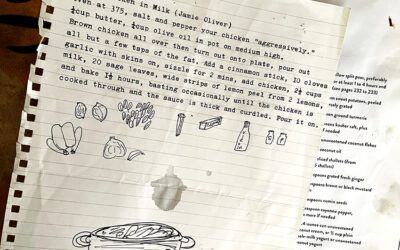 ken in Milk (Jamie Oliver)
ven at 375, salt and pepper your chicken "aggressively."
cup butter, cup olive oil in pot on medium high.
Brown chicken all over then turn onto plate, pour out
all but a few tsps of the fat. Add a cinnamon stick, 10 cloves
garlic with skins on, sizzle for 2 mins, add chicken, 2½ cups
milk, 20 sage leaves, wide strips of lemon peel from 2 lemons,
and bake 1½ hours, basting occasionally until the chicken is
cooked through and the sauce is thick and curdled. Pour it on.
llow split peas, preferably
at least 1 to 4 hours and
(see pages 232 to 233)
sweet potatoes, peeled
on ground turmeric
plus
unsweetened coconut flakes
coconut oil
sliced shallots (from
shallots)
spoons grated fresh ginger
spoons brown or black mustard
spoons cumin seeds
spoon cayenne pepper,
more if needed
unsweetened
cup plain
milk yogurt or unsweetened
yogurt